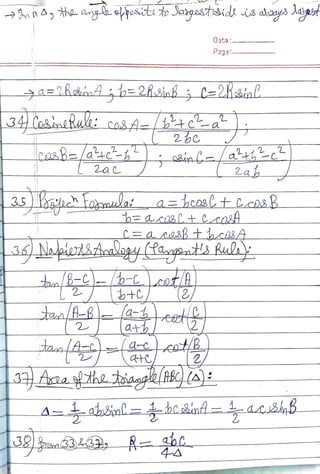 → In a Δ, the angle opposite to largest side is always largest
Date:
Page:
→ a = 2R sinA ; b = 2R sinB ; c = 2R sinC
34) Cosine Rule: cosA = (b²+c²-a² / 2bc) ;
cosB = (a²+c²-b² / 2ac) ; cosinC = (a²+b²-c² / 2ab)
35) Projecⁿ Formula: a = b cosC + c cosB
b = a cosC + c cosA
c = a cosB + b cosA
36) Napier's Analogy (Tangent's Rule):
tan(B-C / 2) = (b-c / b+c) cot(A / 2)
tan(A-B / 2) = (a-b / a+b) cot(C / 2)
tan(A-C / 2) = (a-c / a+c) cot(B / 2)
37) Area of the triangle (ABC) (Δ):
Δ = 1/2 ab sinC = 1/2 bc sinA = 1/2 ac sinB
38) from 33 & 37, R = abc / 4Δ